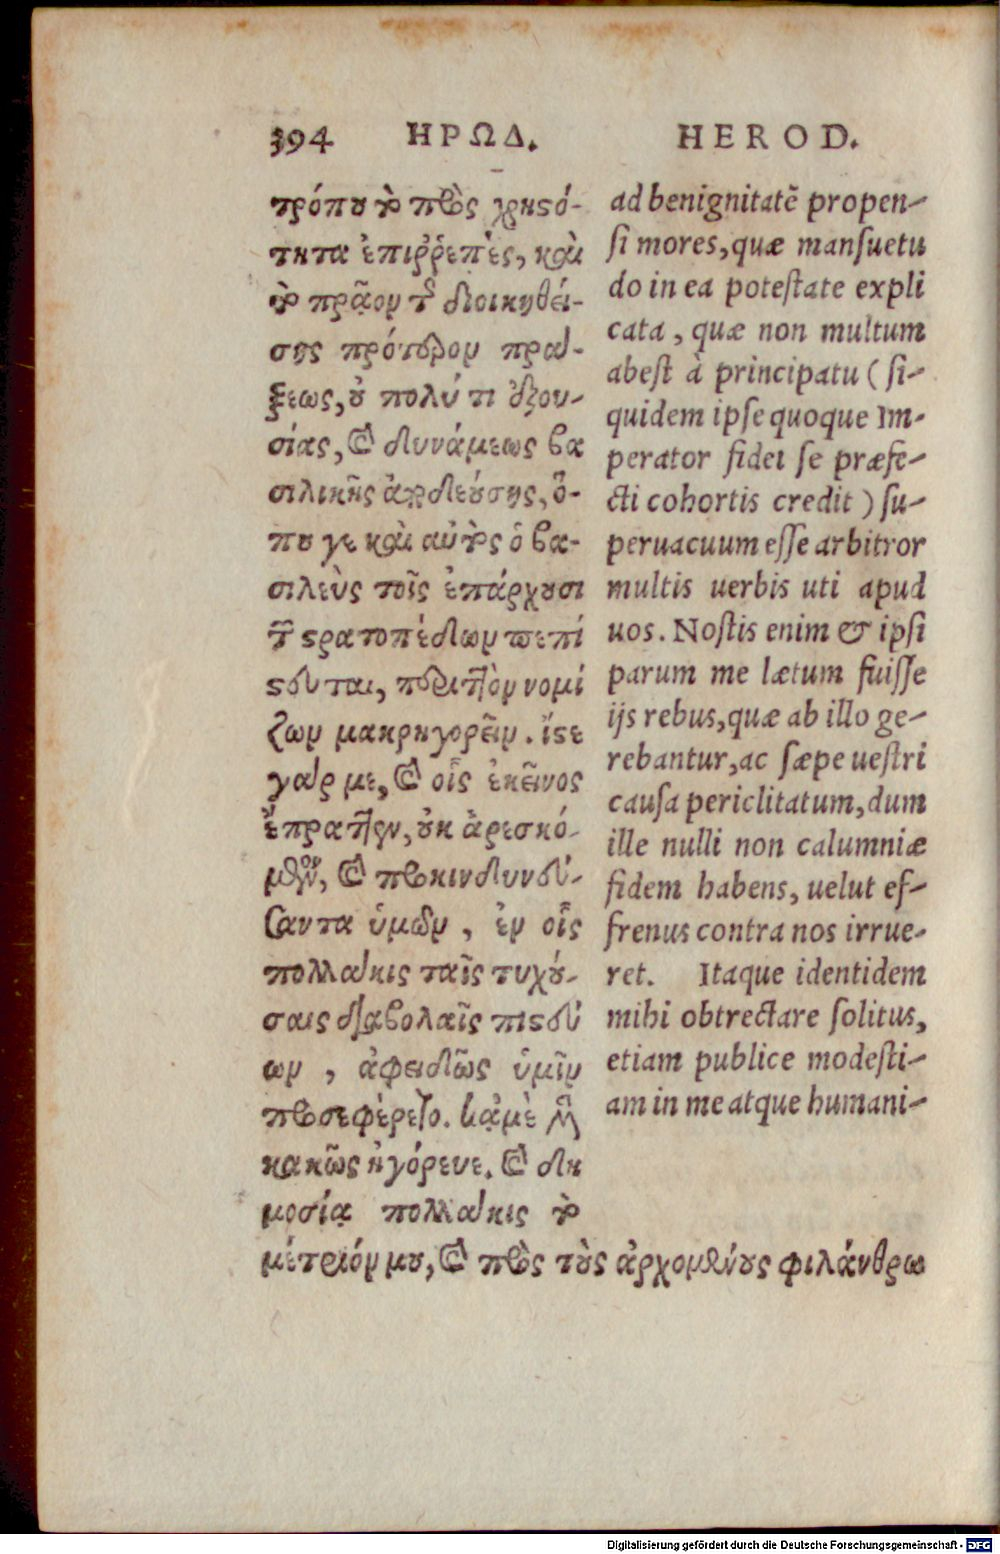 394 ΗΡΩΔ. HEROD.
τρόπου τὸ πρὸς χρηστό-
τητα ἐπιῤῥεπὲς, καὶ
τὸ πρᾷον τῆς διοικηθεί-
σης πρότερον πρά-
ξεως, οὐ πολύ τι ἐξου-
σίας, καὶ δυνάμεως βα
σιλικῆς ἀποδεούσης, ὅ-
που γε καὶ αὐτὸς ὁ βα-
σιλεὺς τοῖς ἐπάρχουσι
τῶν στρατοπέδων πεπί
στευται, περιττὸν νομί
ζων μακρηγορεῖν. ἴστε
γάρ με, καὶ οἷς ἐκεῖνος
ἔπραττεν, οὐκ ἀρεσκό-
μενον, καὶ προκινδυνεύ-
σαντα ὑμῶν, ἐν οἷς
πολλάκις ταῖς τυχού-
σαις διαβολαῖς πιστεύ
ων, ἀφειδῶς ὑμῖν
προσεφέρετο. κᾀμὲ μὲν
κακῶς ἠγόρευε. καὶ δη
μοσίᾳ πολλάκις τὸ
μέτριόν μου, καὶ πρὸς τοὺς ἀρχομένους φιλάνθρω
ad benignitatē propen-
si mores, quæ mansuetu
do in ea potestate expli
cata, quæ non multum
abest à principatu (si-
quidem ipse quoque Im-
perator fidei se præfe-
cti cohortis credit) su-
peruacuum esse arbitror
multis uerbis uti apud
uos. Nostis enim & ipsi
parum me lætum fuisse
ijs rebus, quæ ab illo ge-
rebantur, ac sæpe uestri
causa periclitatum, dum
ille nulli non calumniæ
fidem habens, uelut ef-
frenus contra nos irrue-
ret. Itaque identidem
mihi obtrectare solitus,
etiam publice modesti-
am in me atque humani-
Digitalisierung gefördert durch die Deutsche Forschungsgemeinschaft - DFG